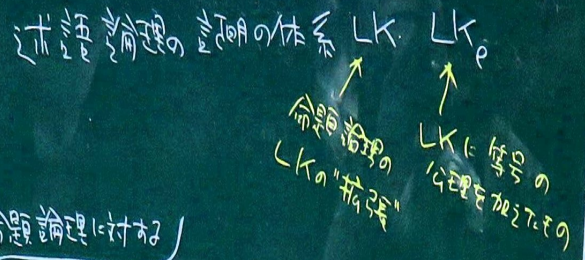 述語論理の証明の体系 LK LKe
命題論理の
LKの"拡張"
LKに等号の
公理を加えたもの
題論理に対する